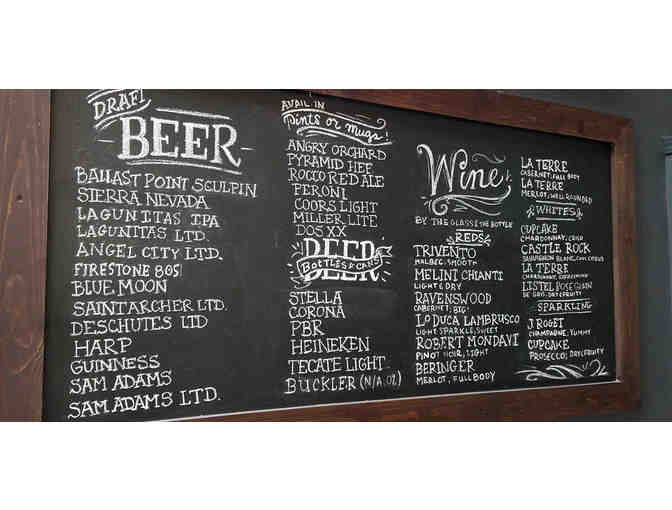 DRAFT
BEER
BALLAST POINT SCULPIN
SIERRA NEVADA
LAGUNITAS IPA
LAGUNITAS LTD.
ANGEL CITY LTD.
FIRESTONE 805
BLUE MOON
SAINT ARCHER LTD.
DESCHUTES LTD
HARP
GUINNESS
SAM ADAMS
SAM ADAMS LTD.
AVAIL IN
Pints or mugs!
ANGRY ORCHARD
PYRAMID HEF
ROCCO RED ALE
PERONI
COORS LIGHT
MILLER LITE
DOS XX
BEER
BOTTLES & CANS
STELLA
CORONA
PBR
HEINEKEN
TECATE LIGHT
BUCKLER (N/A.
Wine
BY THE GLASS & THE BOTTLE
REDS
TRIVENTO
MALBEC, SMOOTH
MELINI CHIANTI
LIGHT & DRY
RAVENSWOOD
CABERNET, BIG!
LO DUCA LAMBRUSCO
LIGHT SPARKLE, SWEET
ROBERT MONDAVI
PINOT NOIR, LIGHT
BERINGER
MERLOT, FULL BODY
LA TERRE
CABERNET, FULL BODY
LA TERRE
MERLOT, WELL ROUNDED
WHITES
CUPCAKE
CHARDONNAY, CRISP
CASTLE ROCK
SAUVIGNON BLANC, CITRUS
LA TERRE
CHARDONNAY,
LISTEL
DE GRIS, DRY & FRUITY
SPARKLING
J ROGET
CHAMPAGNE, YUMMY
CUPCAKE
PROSECCO, DRY & FRUITY